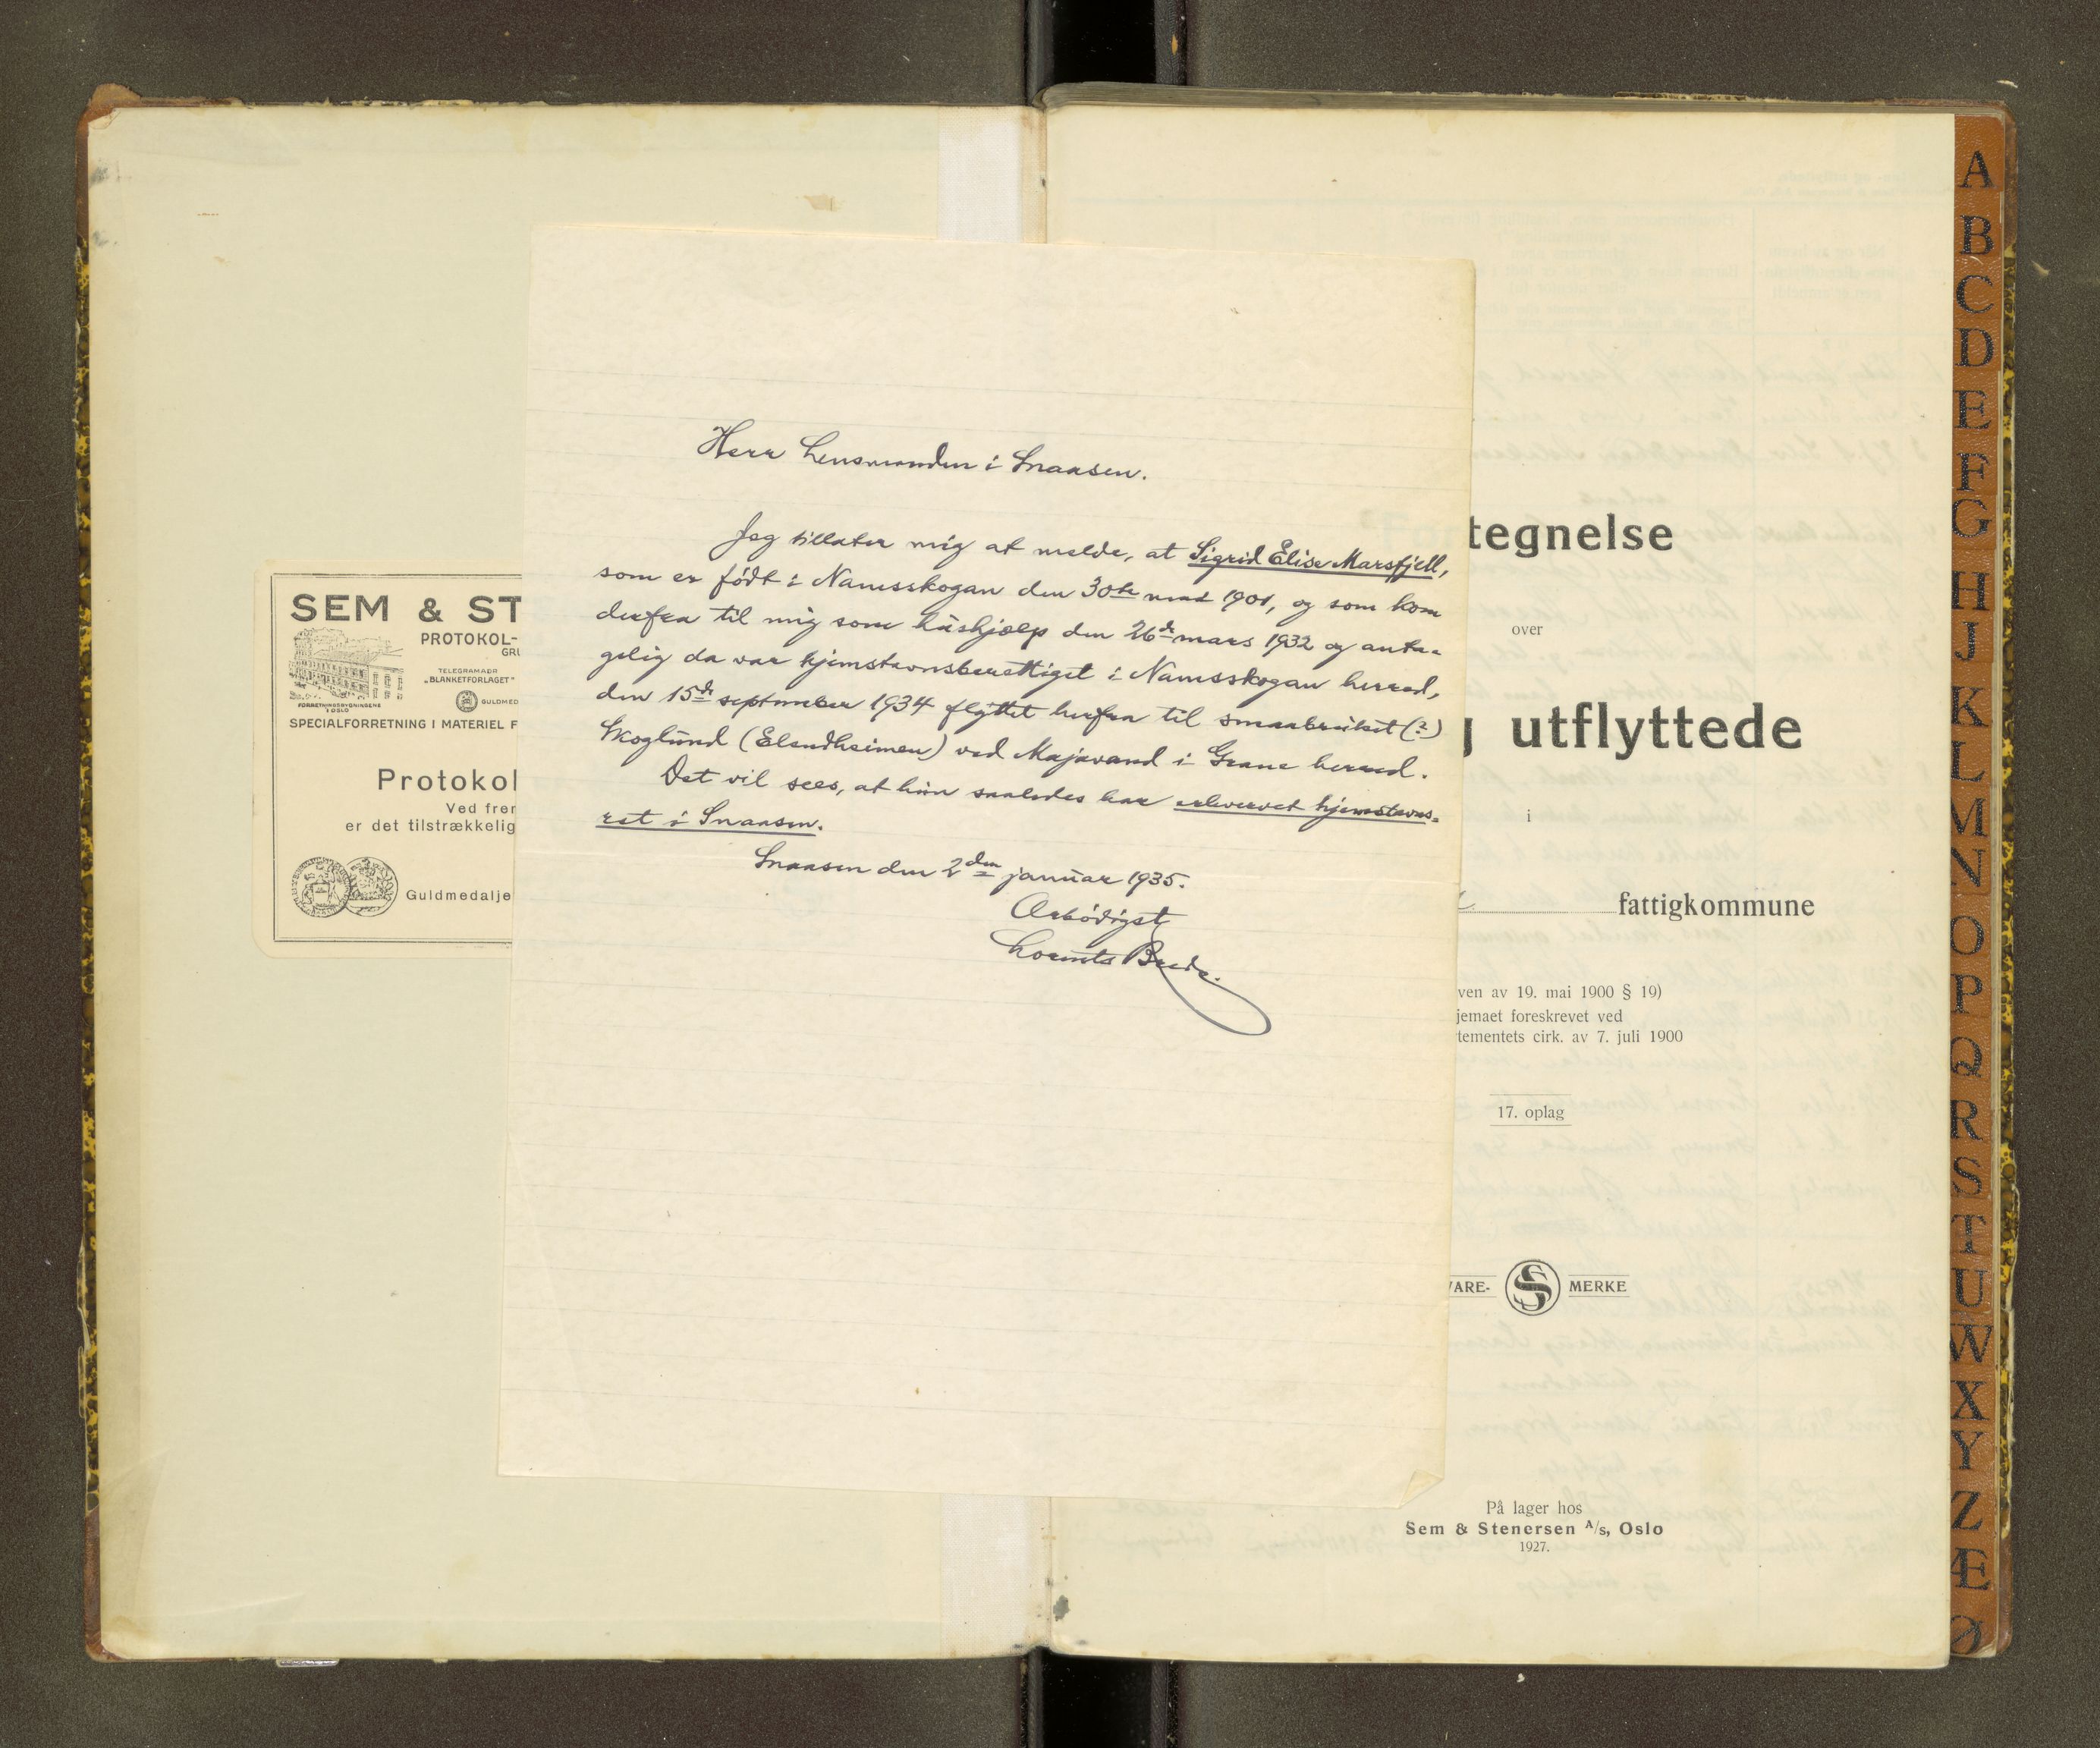 SEM & ST
PROTOKOL-
GRU
TELEGRAMADR
„BLANKETFORLAGET"
FORRETNINGSBYGNINGENE
I OSLO
GULDMED
SPECIALFORRETNING I MATERIEL F
Protokol
Ved frer
er det tilstrækkelig
Guldmedalje
Herr Lensmanden i Snaasen.
Jeg tillater mig at melde, at Sigrid Elise Marsfjell,
som er født i Namsskogan den 30te 1901, og som kom
derfra til mig som húshjælp den 26de mars 1932 og anta-
gelig da var hjemstavnsberettiget i Namsskogan herred,
den 15de september 1934 flyttet herfra til smaabruket (?)
Skoglund (Elendheimen) ved Majavand i Grane herred.
Det vil sees, at hun saaledes har erhvervet hjemstavns-
ret i Snaasen.
Snaasen den 2den januar 1935.
Ærbødigst
Lorents Brede.
tegnelse
over
g utflyttede
i
fattigkommune
ven av 19. mai 1900 § 19)
jemaet foreskrevet ved
tementets cirk. av 7. juli 1900
17. oplag
VARE- S MERKE
På lager hos
Sem & Stenersen A/s, Oslo
1927.
A
B
C
D
E
F
G
H
J
K
L
M
N
O
P
Q
R
S
T
U
W
X
Y
Z
Æ
Ø